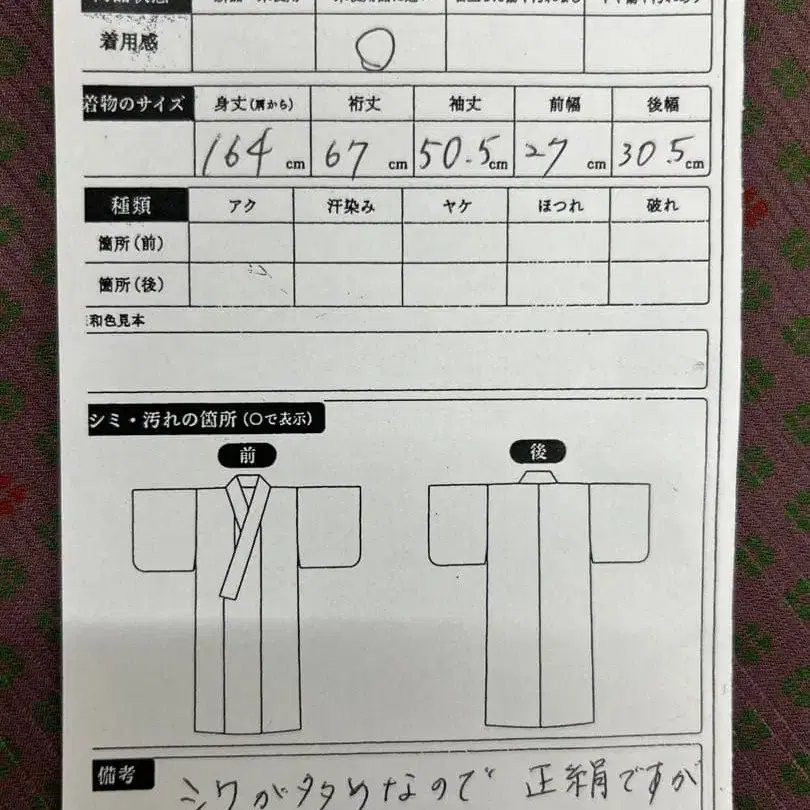 着用感 ○
着物のサイズ 身丈(肩から) 裄丈 袖丈 前幅 後幅
164cm 67cm 50.5cm 27cm 30.5cm
種類 アク 汗染み ヤケ ほつれ 破れ
箇所(前)
箇所(後)
和色見本
シミ・汚れの箇所(○で表示)
前 後
備考 シワが多めなので 正絹ですが